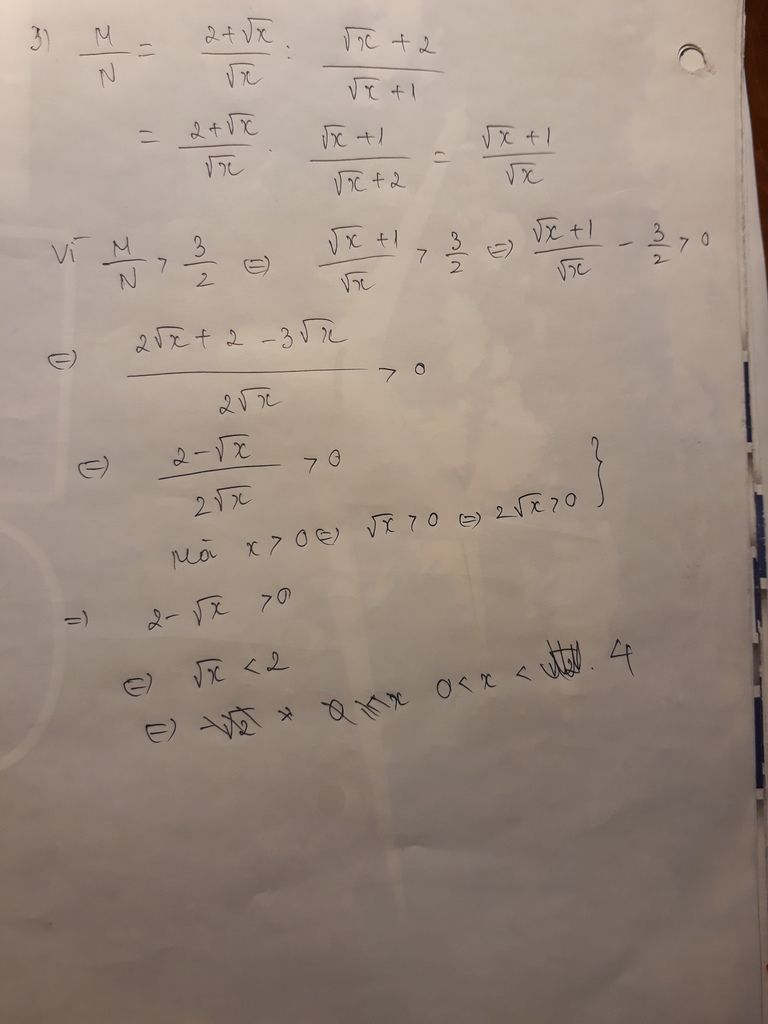 3) M/N = (2+√x)/√x : (√x+2)/(√x+1)
= (2+√x)/√x . (√x+1)/(√x+2) = (√x+1)/√x
Vì M/N > 3/2 ⇔ (√x+1)/√x > 3/2 ⇔ (√x+1)/√x - 3/2 > 0
⇔ (2√x+2-3√x)/(2√x) > 0
⇔ (2-√x)/(2√x) > 0
Mà x > 0 ⇔ √x > 0 ⇔ 2√x > 0 }
⇒ 2-√x > 0
⇔ √x < 2
⇔ 0 < x < 4